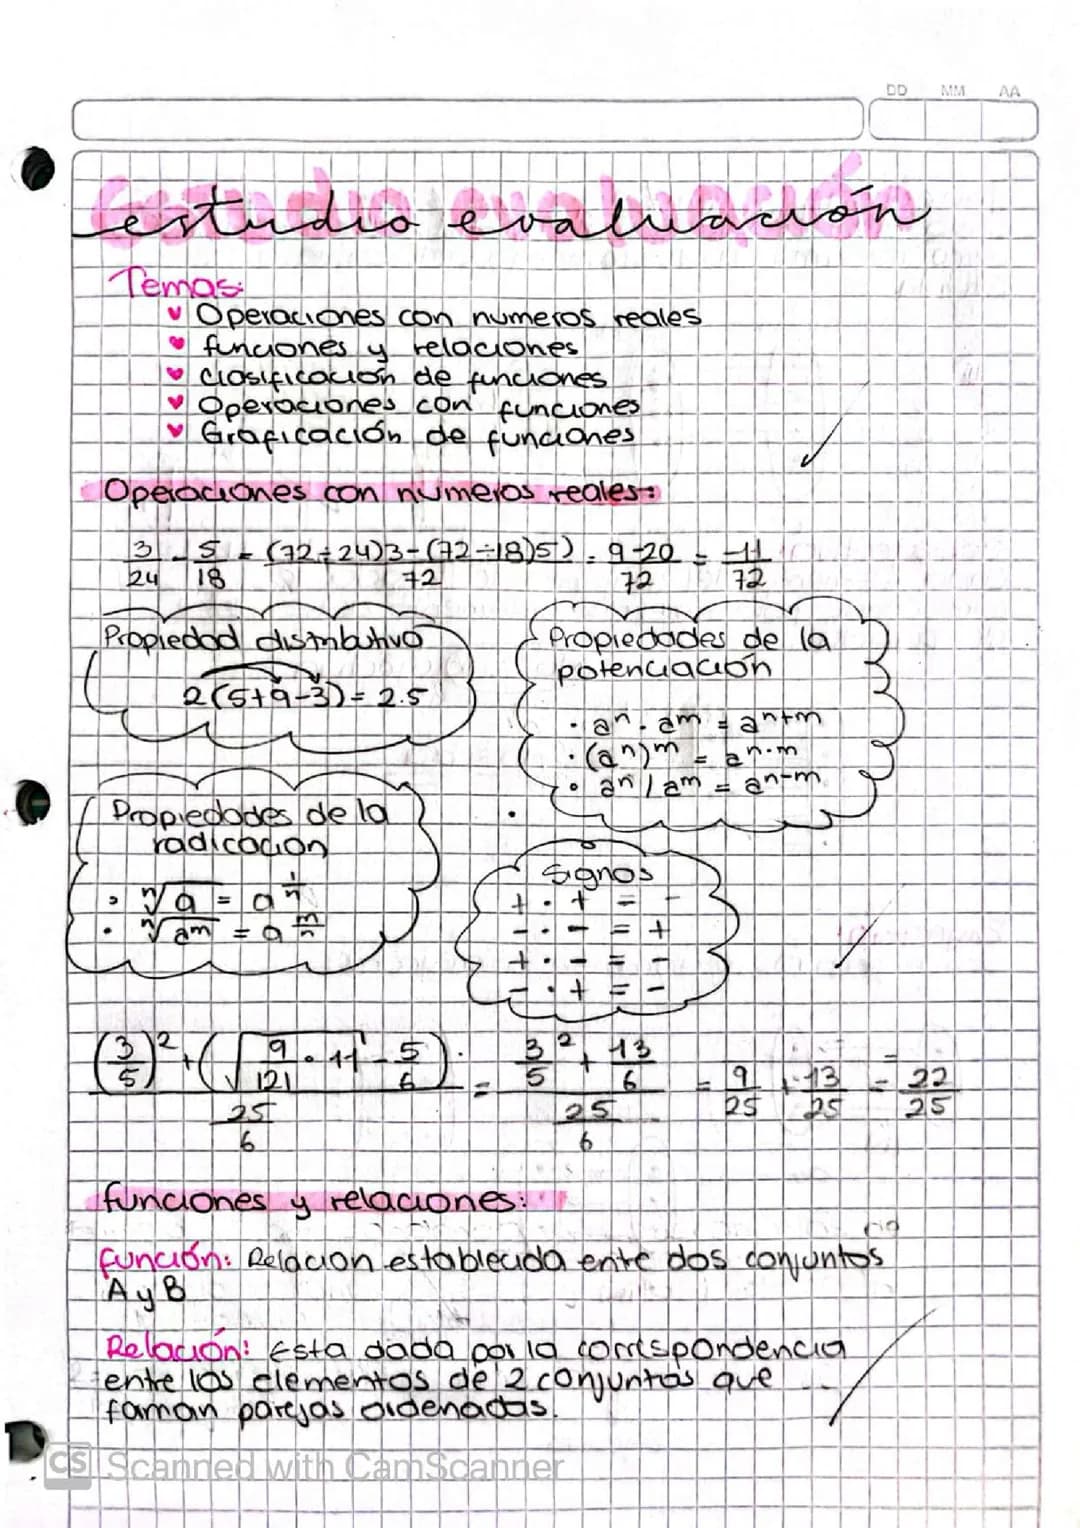 DD MM AA
estudio evaluación
Temas:
Operaciones con numeros reales
funciones y relaciones
clasificación de funciones
Operaciones con funciones
Graficación de funciones
Operaciones con numeros reales:
3/24 - 5/18 = (72÷24)3-(72÷18)5)/72 = 9-20/72 = -11/72
Propiedad distributiva
2(5+9-3)= 2.5
Propiedades de la
potenciación
• aⁿ . aᵐ = aⁿ⁺ᵐ
• (aⁿ)ᵐ = aⁿ·ᵐ
• aⁿ / aᵐ = aⁿ⁻ᵐ
Propiedades de la
radicacion
• ⁿ√a = a^(1/n)
• ⁿ√aᵐ = a^(m/n)
Signos
+ . + = -
- . - = +
+ . - = -
- . + = -
((3/5)² + (√(9/121) • 11 - 5/6))/(25/6) = (3²/5 + 13/6)/(25/6) = 9/25 + 13/25 = 22/25
funciones y relaciones:
función: Relacion establecida ente dos conjuntos
A y B
Relación: Esta dada por la correspondencia
entre los elementos de 2 conjuntos que
forman parejas ordenadas.
CS Scanned with CamScanner